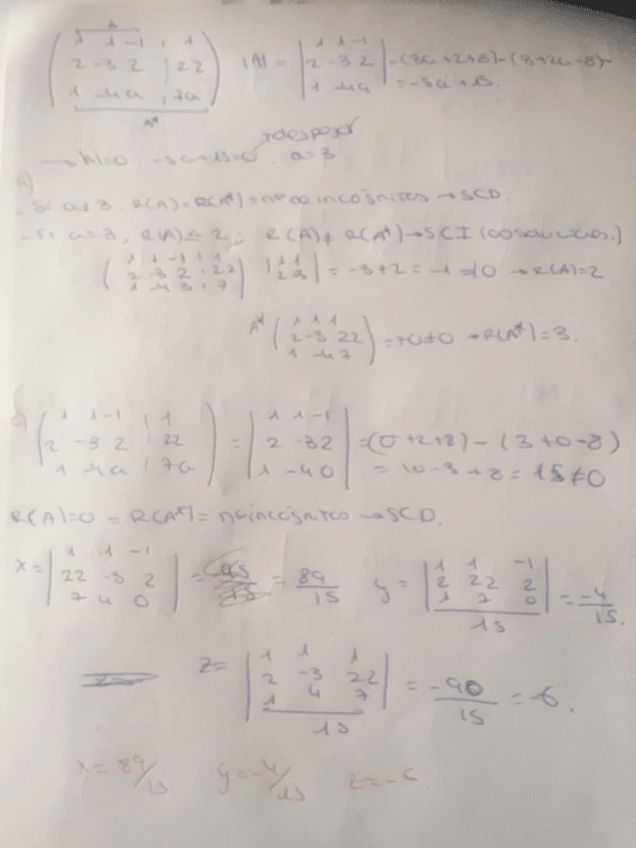 A
( 1 1 -1 | 1
2 -3 2 | 22
1 -4 a | 7a )
A*
|A| = | 1 1 -1
2 -3 2
1 -4 a | = (-3a+2+8)-(3+2a-8)=
= -5a+15.
→ |A|=0 . -5a+15=0 . a=3
- Si a≠3. R(A)=R(A*)=nº de incógnitas → SCD.
- Si a=3; R(A)≤2; R(A)≠R(A*) → SCI (∞ soluciones.)
( 1 1 -1 | 1
2 -3 2 | 22
1 -4 3 | 7 )
| 1 1
2 -3 | = -3+2 = -1 ≠0 → R(A)=2
A* ( 1 1 1
2 -3 22
1 -4 7 ) = 70≠0 → R(A*)=3.
( 1 1 -1 | 1
2 -3 2 | 22
1 -4 a | 7a ) = | 1 1 -1
2 -3 2
1 -4 0 | = (0+2+8) - (3+0-8)
= 10-3+8 = 15 ≠0
R(A)=0 = R(A*) = nº incógnitas → SCD.
x = | 1 1 -1
22 -3 2
7 4 0 | = = 89/15
y = | 1 1 -1
2 22 2
1 7 0 | / 15 = -4/15.
z = | 1 1 1
2 -3 22
1 4 7 | / 15 = -90/15 = -6.
x = 89/15 y = -4/15 z = -6